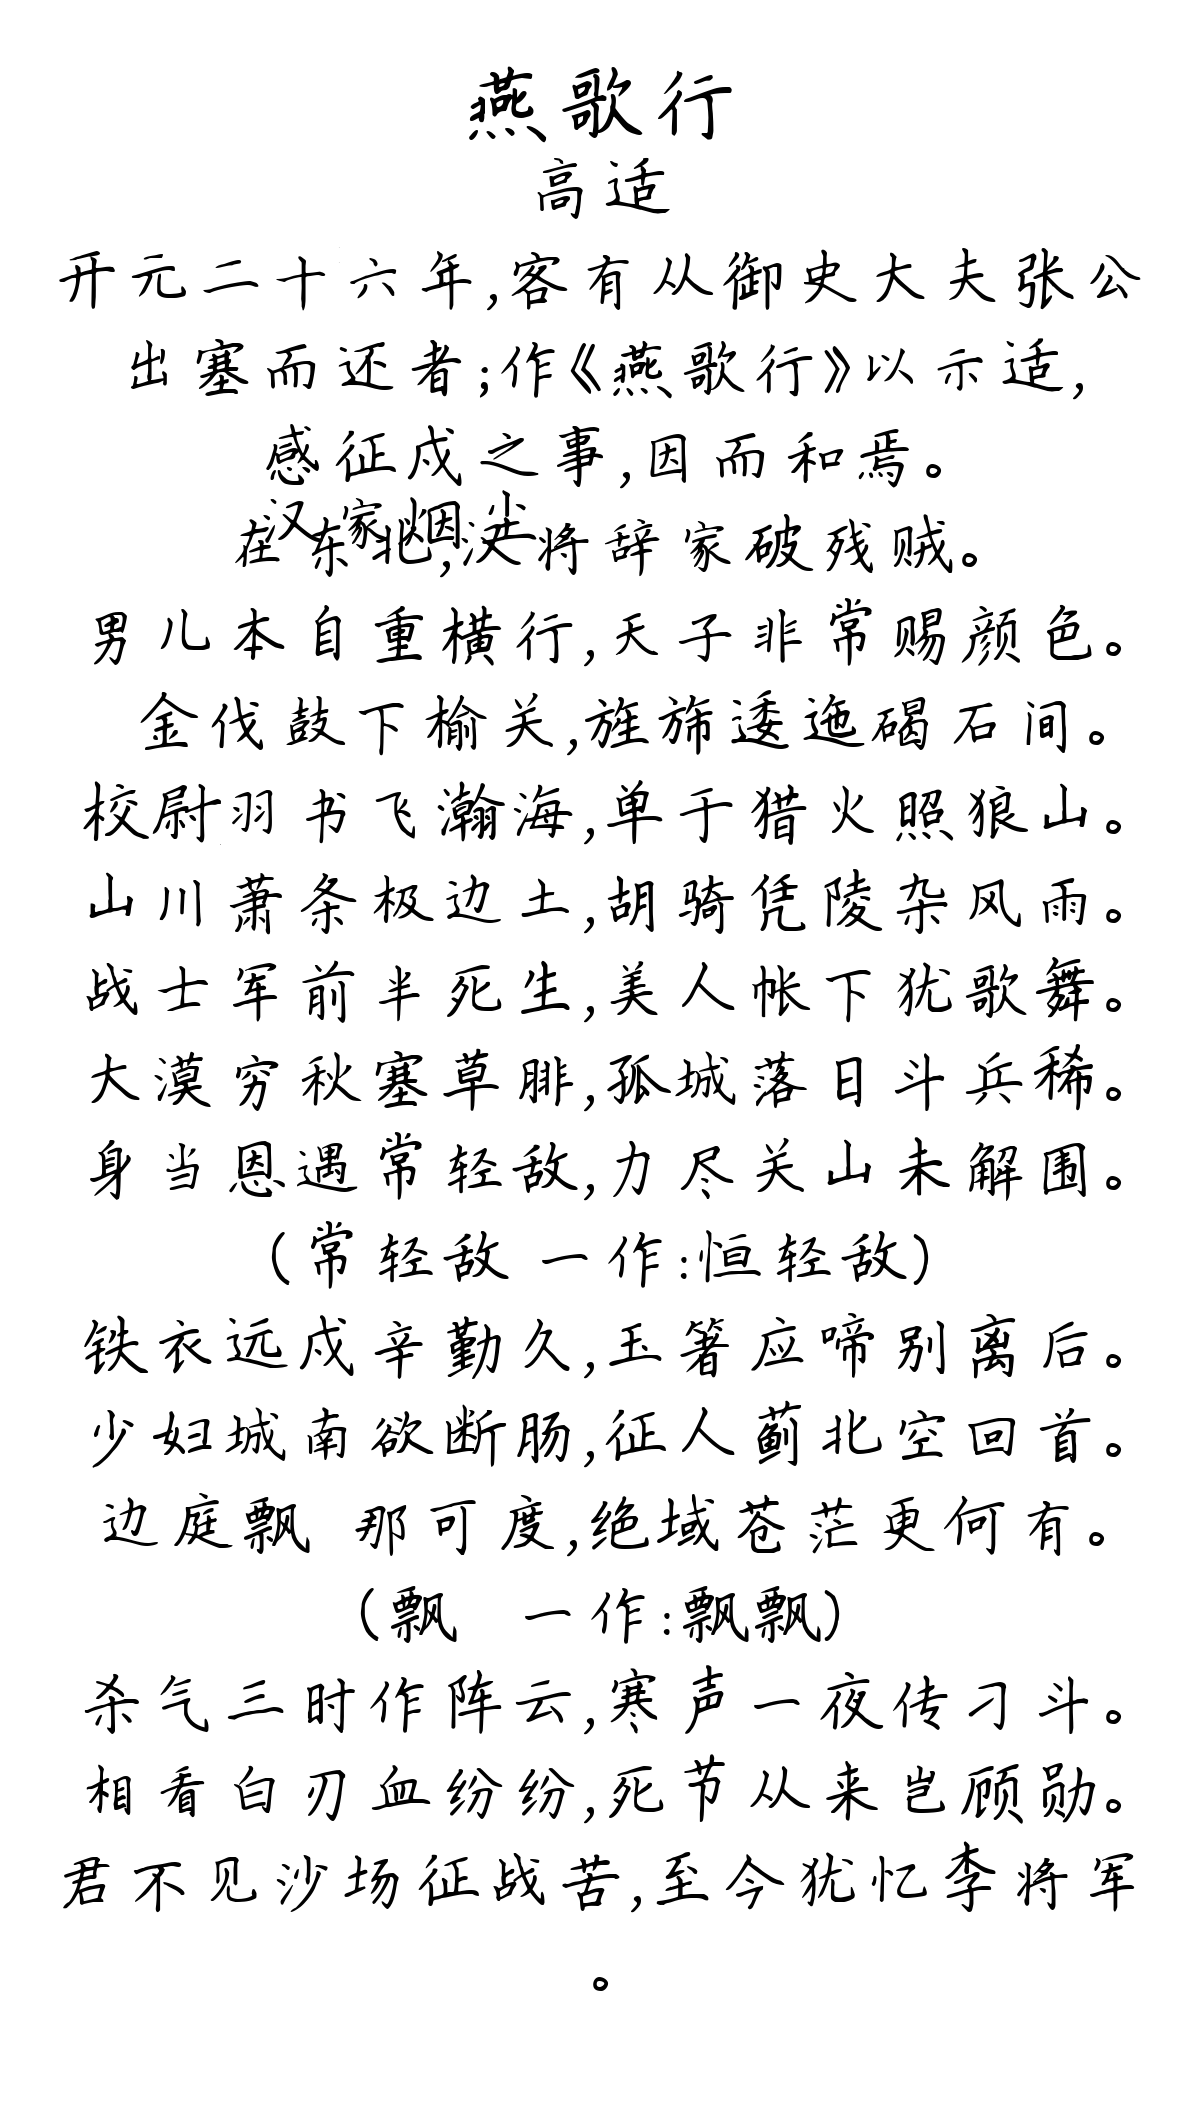 燕歌行
高适
开元二十六年,客有从御史大夫张公
出塞而还者;作《燕歌行》以示适,
感征戍之事,因而和焉。
汉家烟尘
在东北,汉将辞家破残贼。
男儿本自重横行,天子非常赐颜色。
金伐鼓下榆关,旌旆逶迤碣石间。
校尉羽书飞瀚海,单于猎火照狼山。
山川萧条极边土,胡骑凭陵杂风雨。
战士军前半死生,美人帐下犹歌舞。
大漠穷秋塞草腓,孤城落日斗兵稀。
身当恩遇常轻敌,力尽关山未解围。
(常轻敌 一作:恒轻敌)
铁衣远戍辛勤久,玉箸应啼别离后。
少妇城南欲断肠,征人蓟北空回首。
边庭飘 那可度,绝域苍茫更何有。
(飘 一作:飘飘)
杀气三时作阵云,寒声一夜传刁斗。
相看白刃血纷纷,死节从来岂顾勋。
君不见沙场征战苦,至今犹忆李将军
。